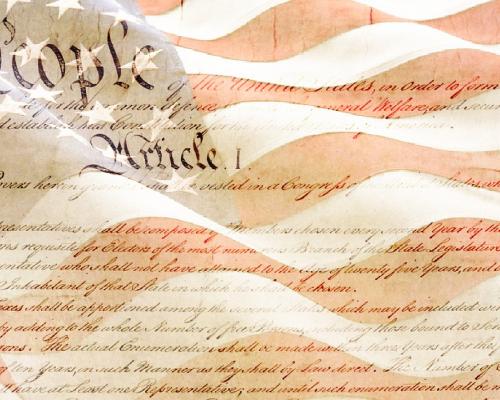 People
of the United States, in Order to form
for the common defence, general Welfare, and secu
establish this Constitution for the America.
Article. I
Powers herein granted shall vested in a Congress of
presentatives shall be composed of Members chosen every second Year by th
ons requisite for Electors of the most numerous Branch of the State Legislature
entative who shall not have attained to the Age of twenty five Years, and
Inhabitant of that State in which he shall be chosen.
axes shall be apportioned among the several States which may be included with
by adding to the whole Number of free Persons, including those bound to S
ions. The actual Enumeration shall be made within three Years after the
of ten Years, in such Manner as they shall by Law direct. The Number of
ll have at Least one Representative; and until such enumeration shall be m